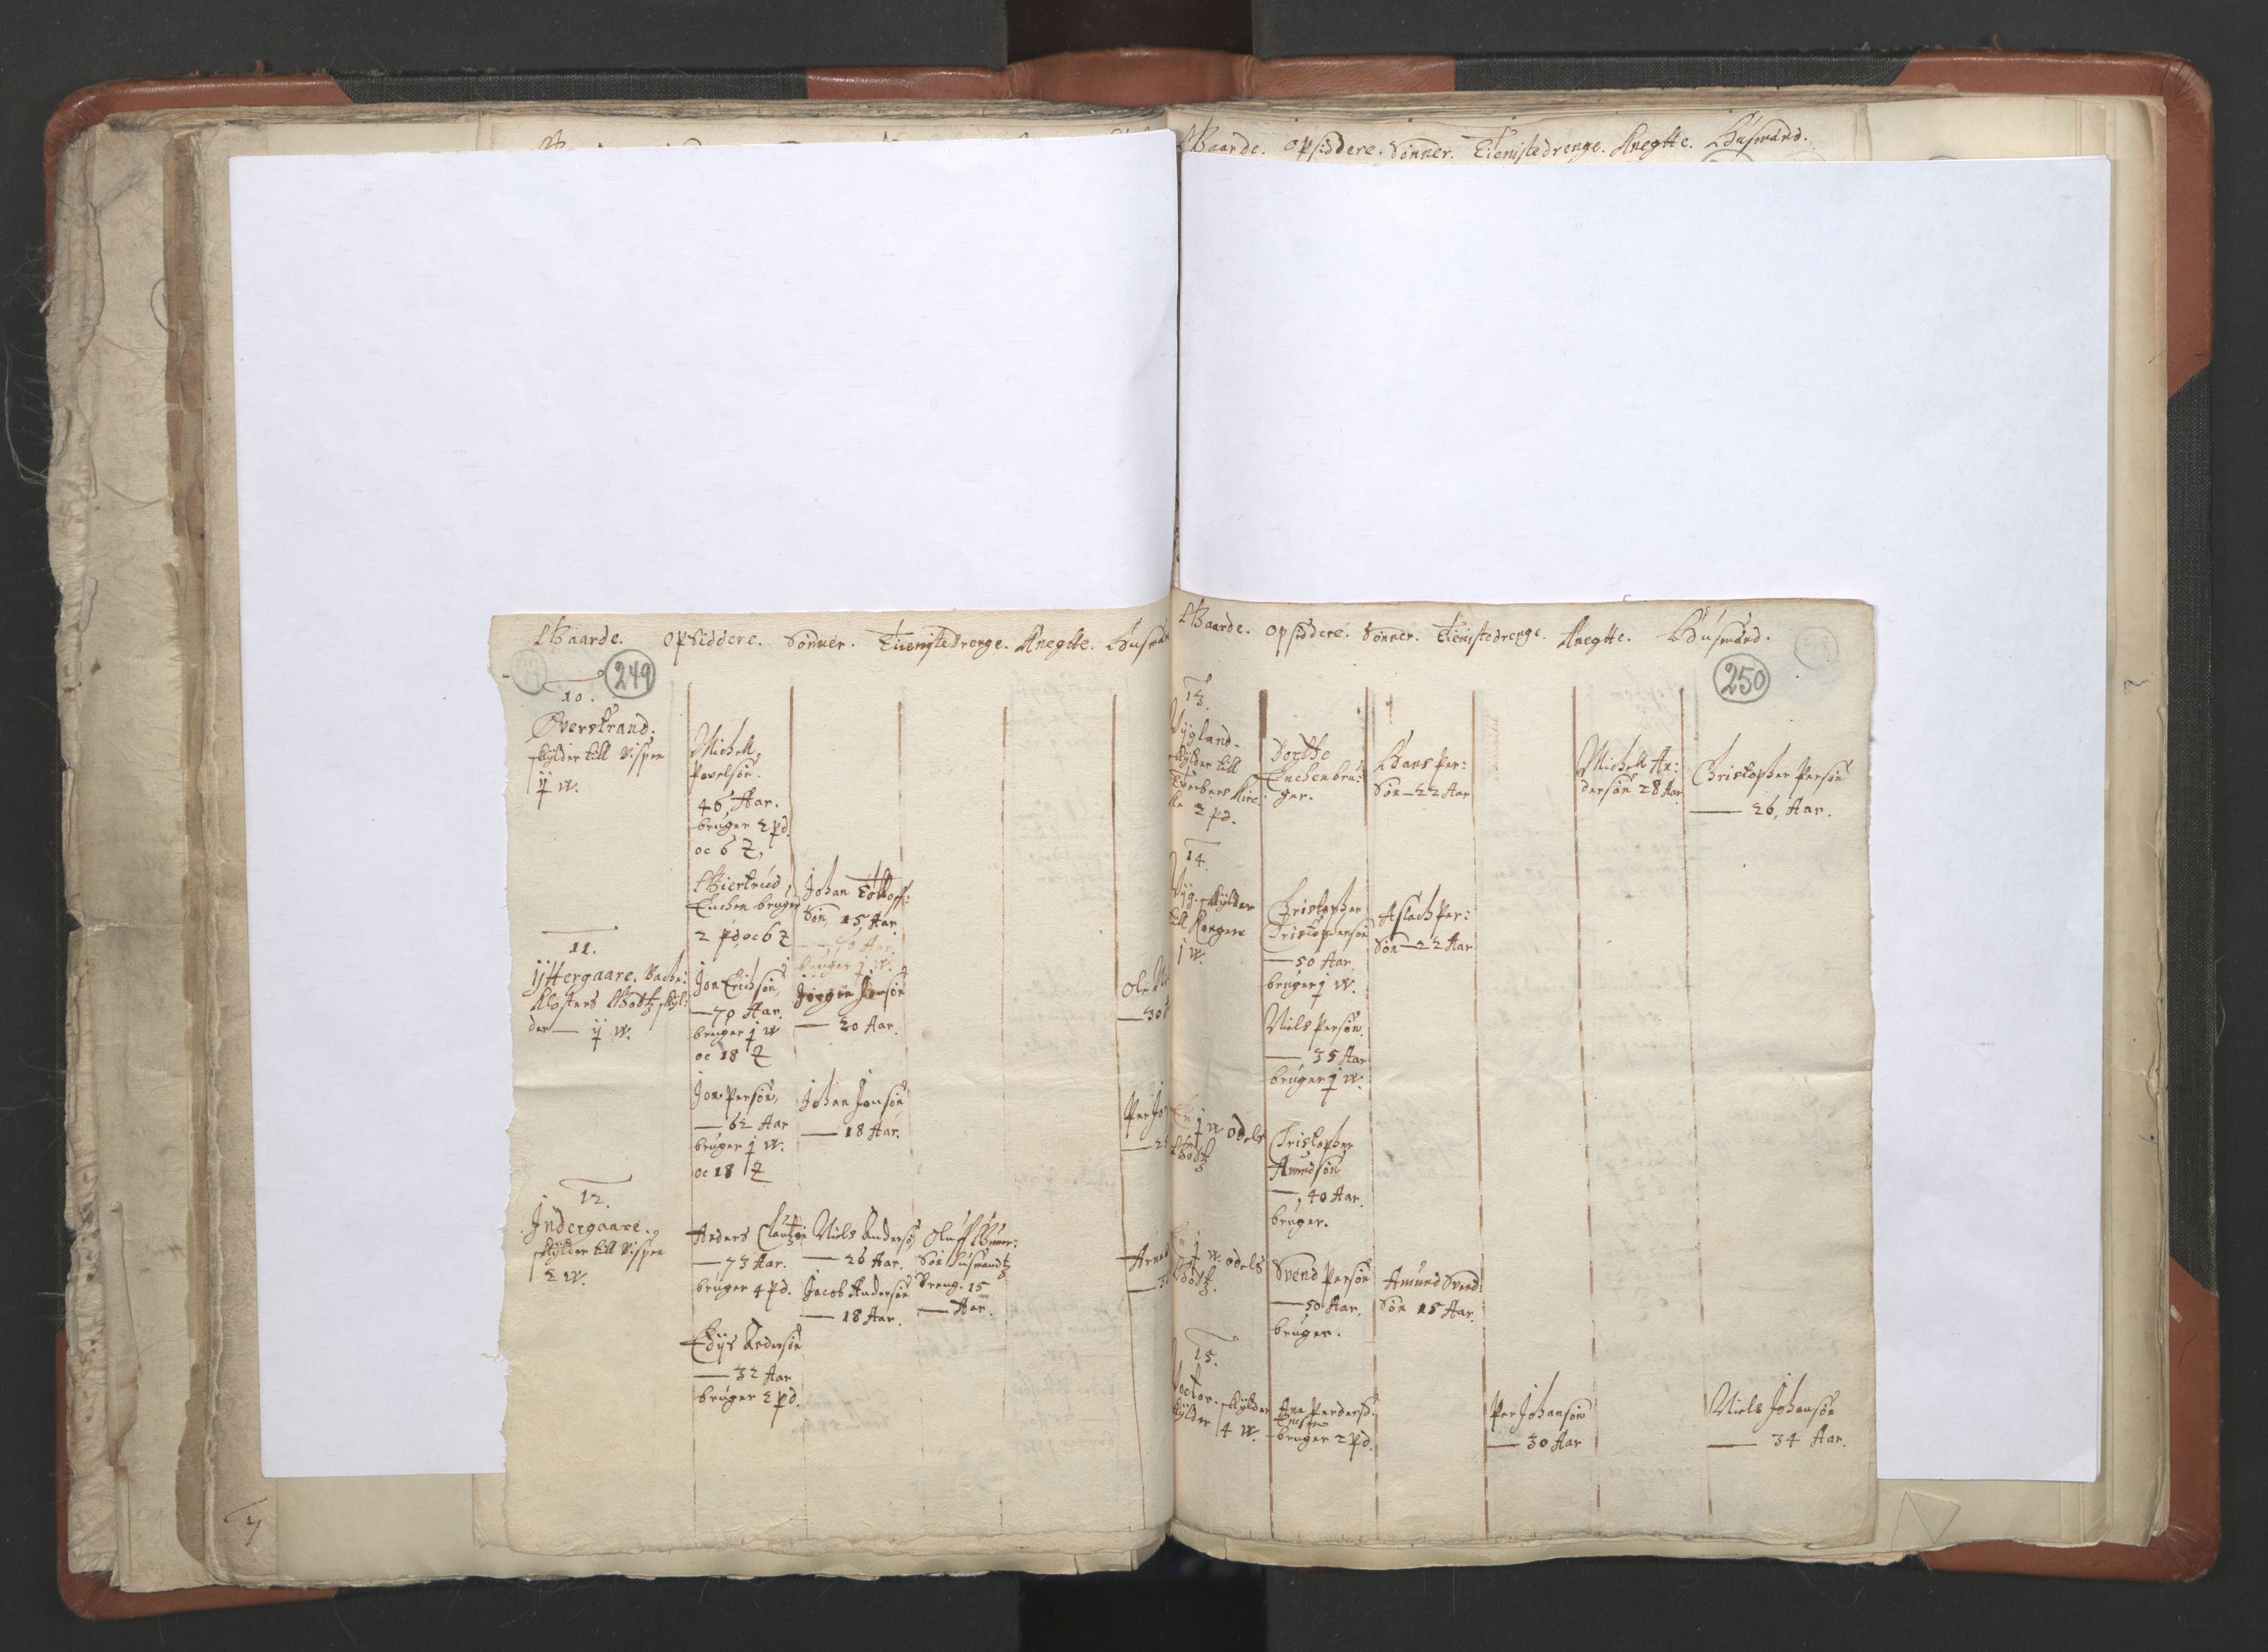 Gaarde. opsiddere. Sønner. Tienistedrenge. Knegtte. Husmænd.
Gaarde. opsiddere. Sønner. Tienistedrenge. Knegtte.
249
10.
Øverstrand,
skylder till
ij w.
Michell
Povelsøn.
46 Aar.
bruger 2 pd.
oc 6
Giertrud
Enchen bruger
2 pd, oc 6
Johan Tolloff:
Søn, 15 Aar.
11.
ijttergaare.
Klosters Godtz skyl:
der — ij w.
Jon Erichsøn,
— 70 Aar.
bruger j w
oc 18
Jørgen Jonsøn
— 20 Aar.
Jon Persøn,
— 62 Aar
bruger j w.
oc 18
Johan Jonsøn
— 18 Aar.
12.
Indergaare.
skylder till
2 w.
Anders
— 73 Aar.
bruger 4 pd.
Niels Andersø
— 26 Aar.
Jacob Andersøn
— 18 Aar.
Oluff
Søn Husmandtz
Dreng. 15
— Aar.
Andersøn
— 32 Aar
bruger 2 pd.
Gaarde. opsiddere. Sønner. Tienistedrenge. Knegtte. Husmænd.
250
13.
skylder till
2 pd.
Dorthe
Enchen bru:
ger.
Hans Per:
Søn — 22 Aar
Michell An:
dersøn 28 Aar
Christopher Persøn
— 26, Aar.
14.
skylder
till
j w.
Christopher
Christophersøn
— 50 Aar.
bruger j w.
Aslach Per:
Søn — 22 Aar
Niels Persøn.
— 35 Aar
bruger j w.
j w odels
Godtz
Christopher
Amundsøn
— 40 Aar.
bruger.
j w. odels
Godtz.
Svend Persøn
— 50 Aar.
bruger.
Amund Svend:
Søn 15 Aar.
15.
skylder
4 w.
Ane Pedersd.
Enchen
bruger 2 pd.
Per Johansøn
— 30 Aar
Niels Johansøn
— 34 Aar.